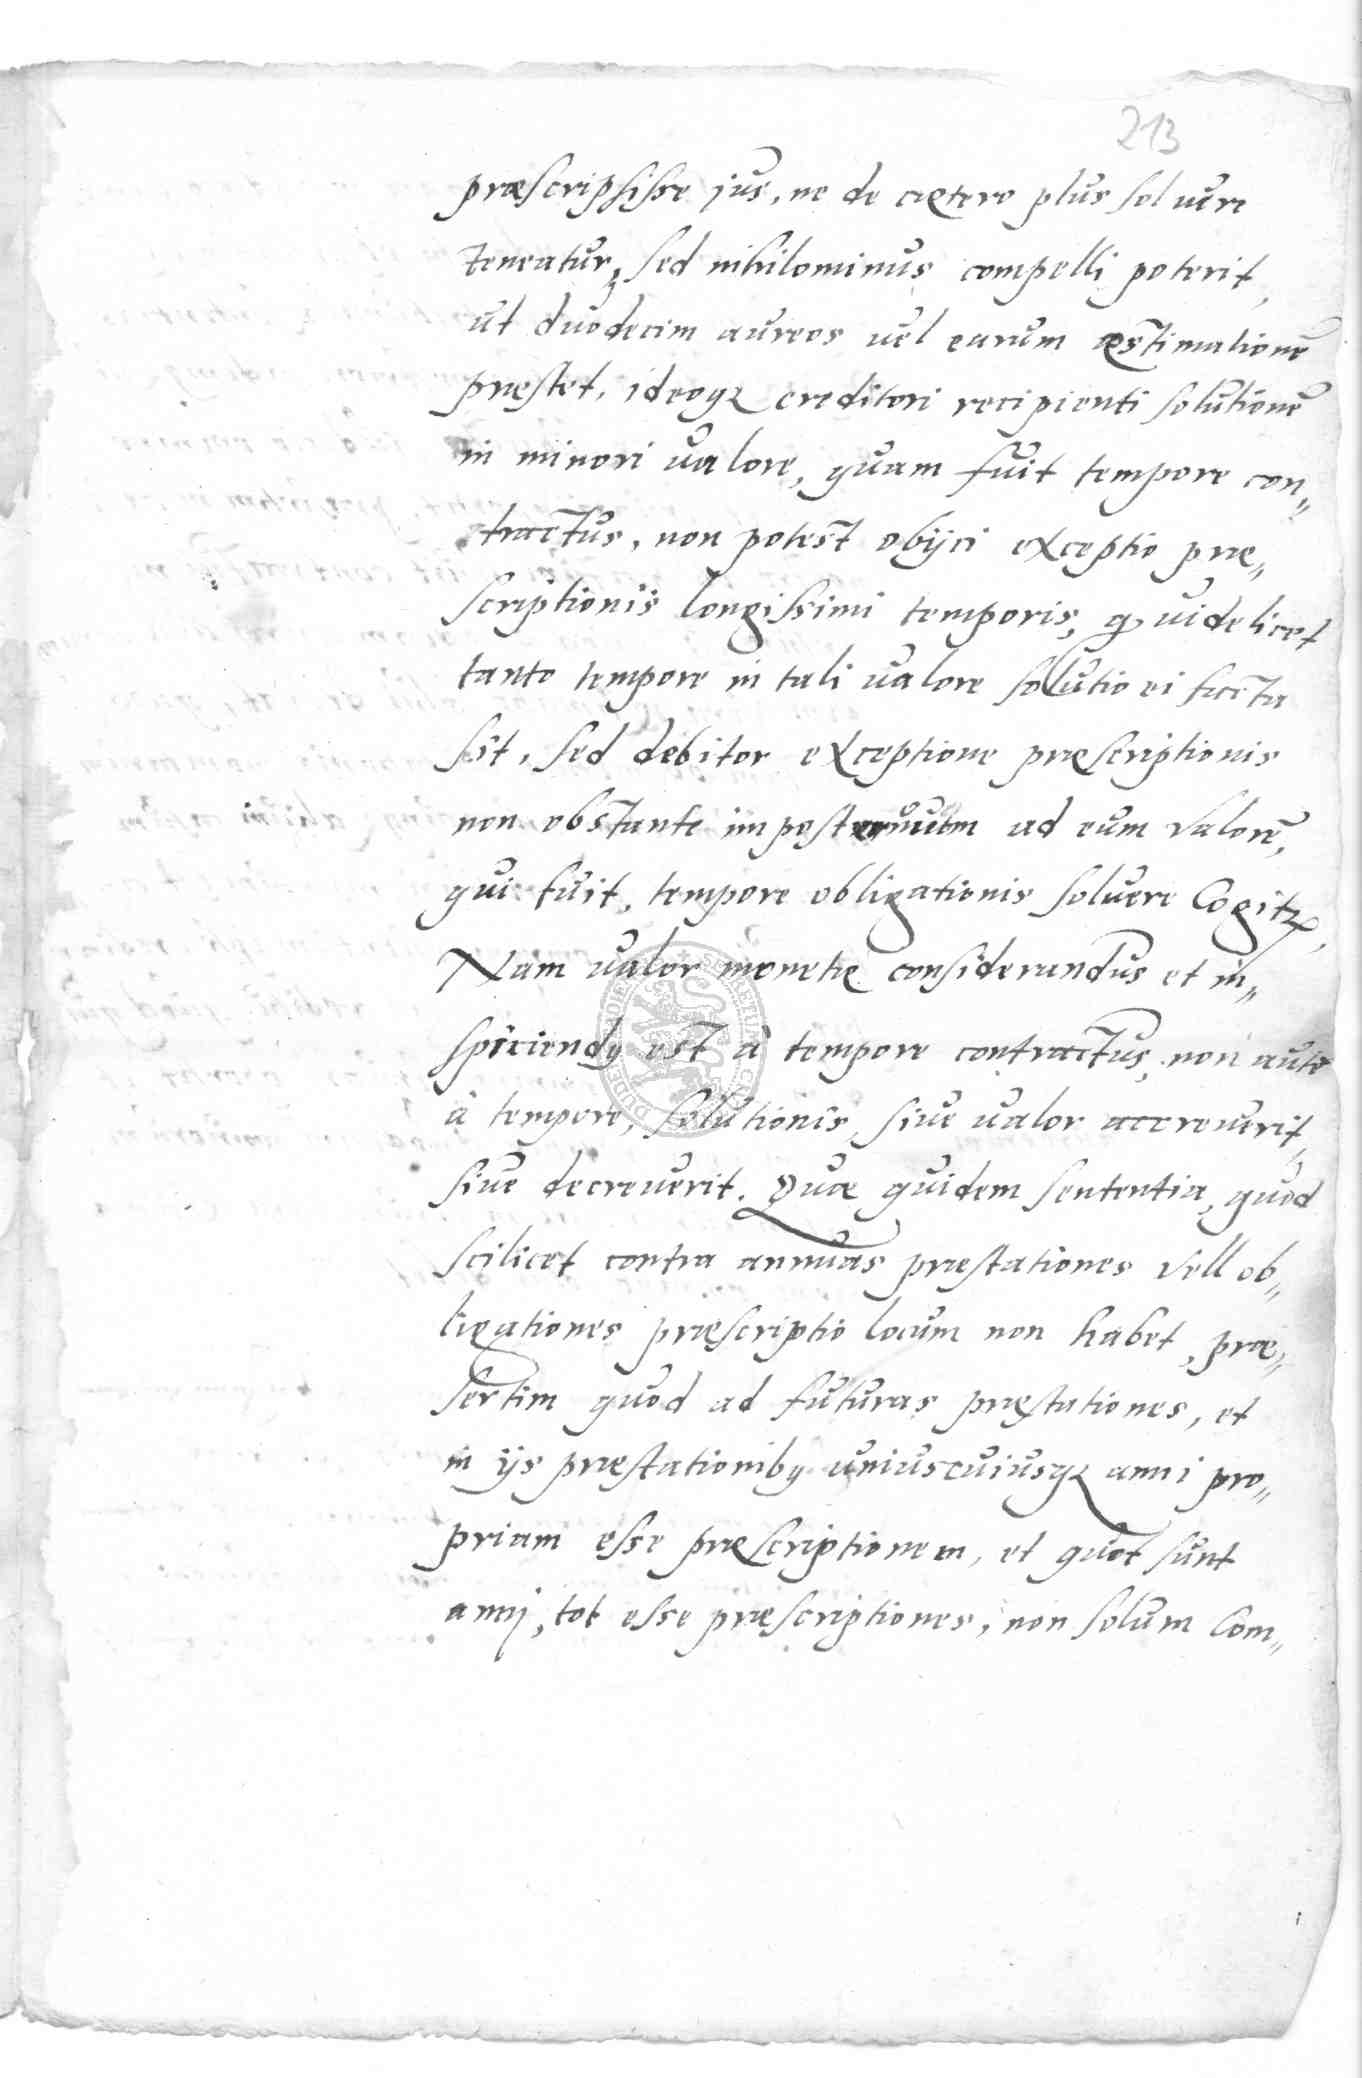 213
præscripsisse jus, ne de cætero plus solvere
teneatur, sed nihilominus compelli poterit,
ut duodecim aureos vel earum æstimationē
præstet, ideoqꝫ creditori recipienti solutionē
in minori valore, quam fuit tempore con„
tractus, non potest obijci exceptio præ„
scriptionis longissimi temporis, ꝙ videlicet
tanto tempore in tali valore solutio ei facta
sit, sed debitor exceptione præscriptionis
non obstante imposterum ad eum valorē,
qui fuit, tempore obligationis solvere Cogitꝛ,
Nam valor monetæ considerandus et in„
spiciendꝰ est à tempore contractus, non autē
à tempore, solutionis, sive valor accreverit,
sive decreverit. Quæ quidem sententia, quod
scilicet contra annuas præstationes vell ob„
ligationes præscriptio locum non habet, præ„
sertim quod ad futuras præstationes, et
in ijs præstationibꝰ uniuscuiusqꝫ anni pro„
priam esse præscriptionem, et quot sunt
annj, tot esse præscriptiones, non solum Com„